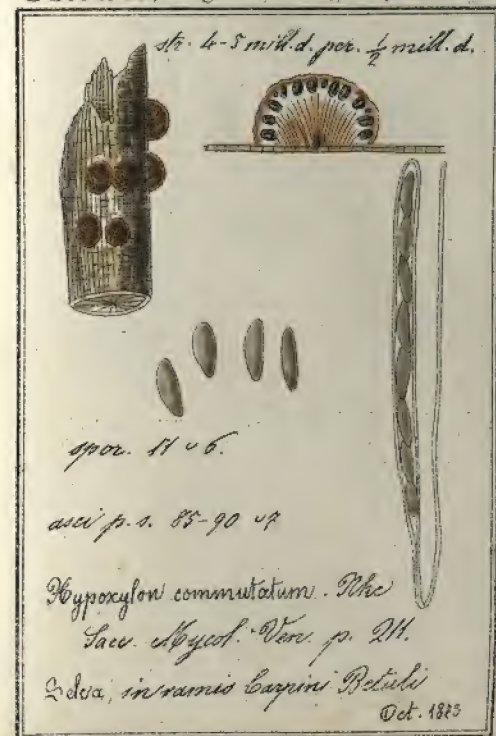 str. 4-5 mill. d. per. ½ mill. d.
spor. 11 ∪ 6.
asci p. s. 85-90 ∪ 7
Hypoxylon commutatum. Nke
Sacc. Mycol. Ven. p. 211.
Selva, in ramis Carpini Betuli
Oct. 1873